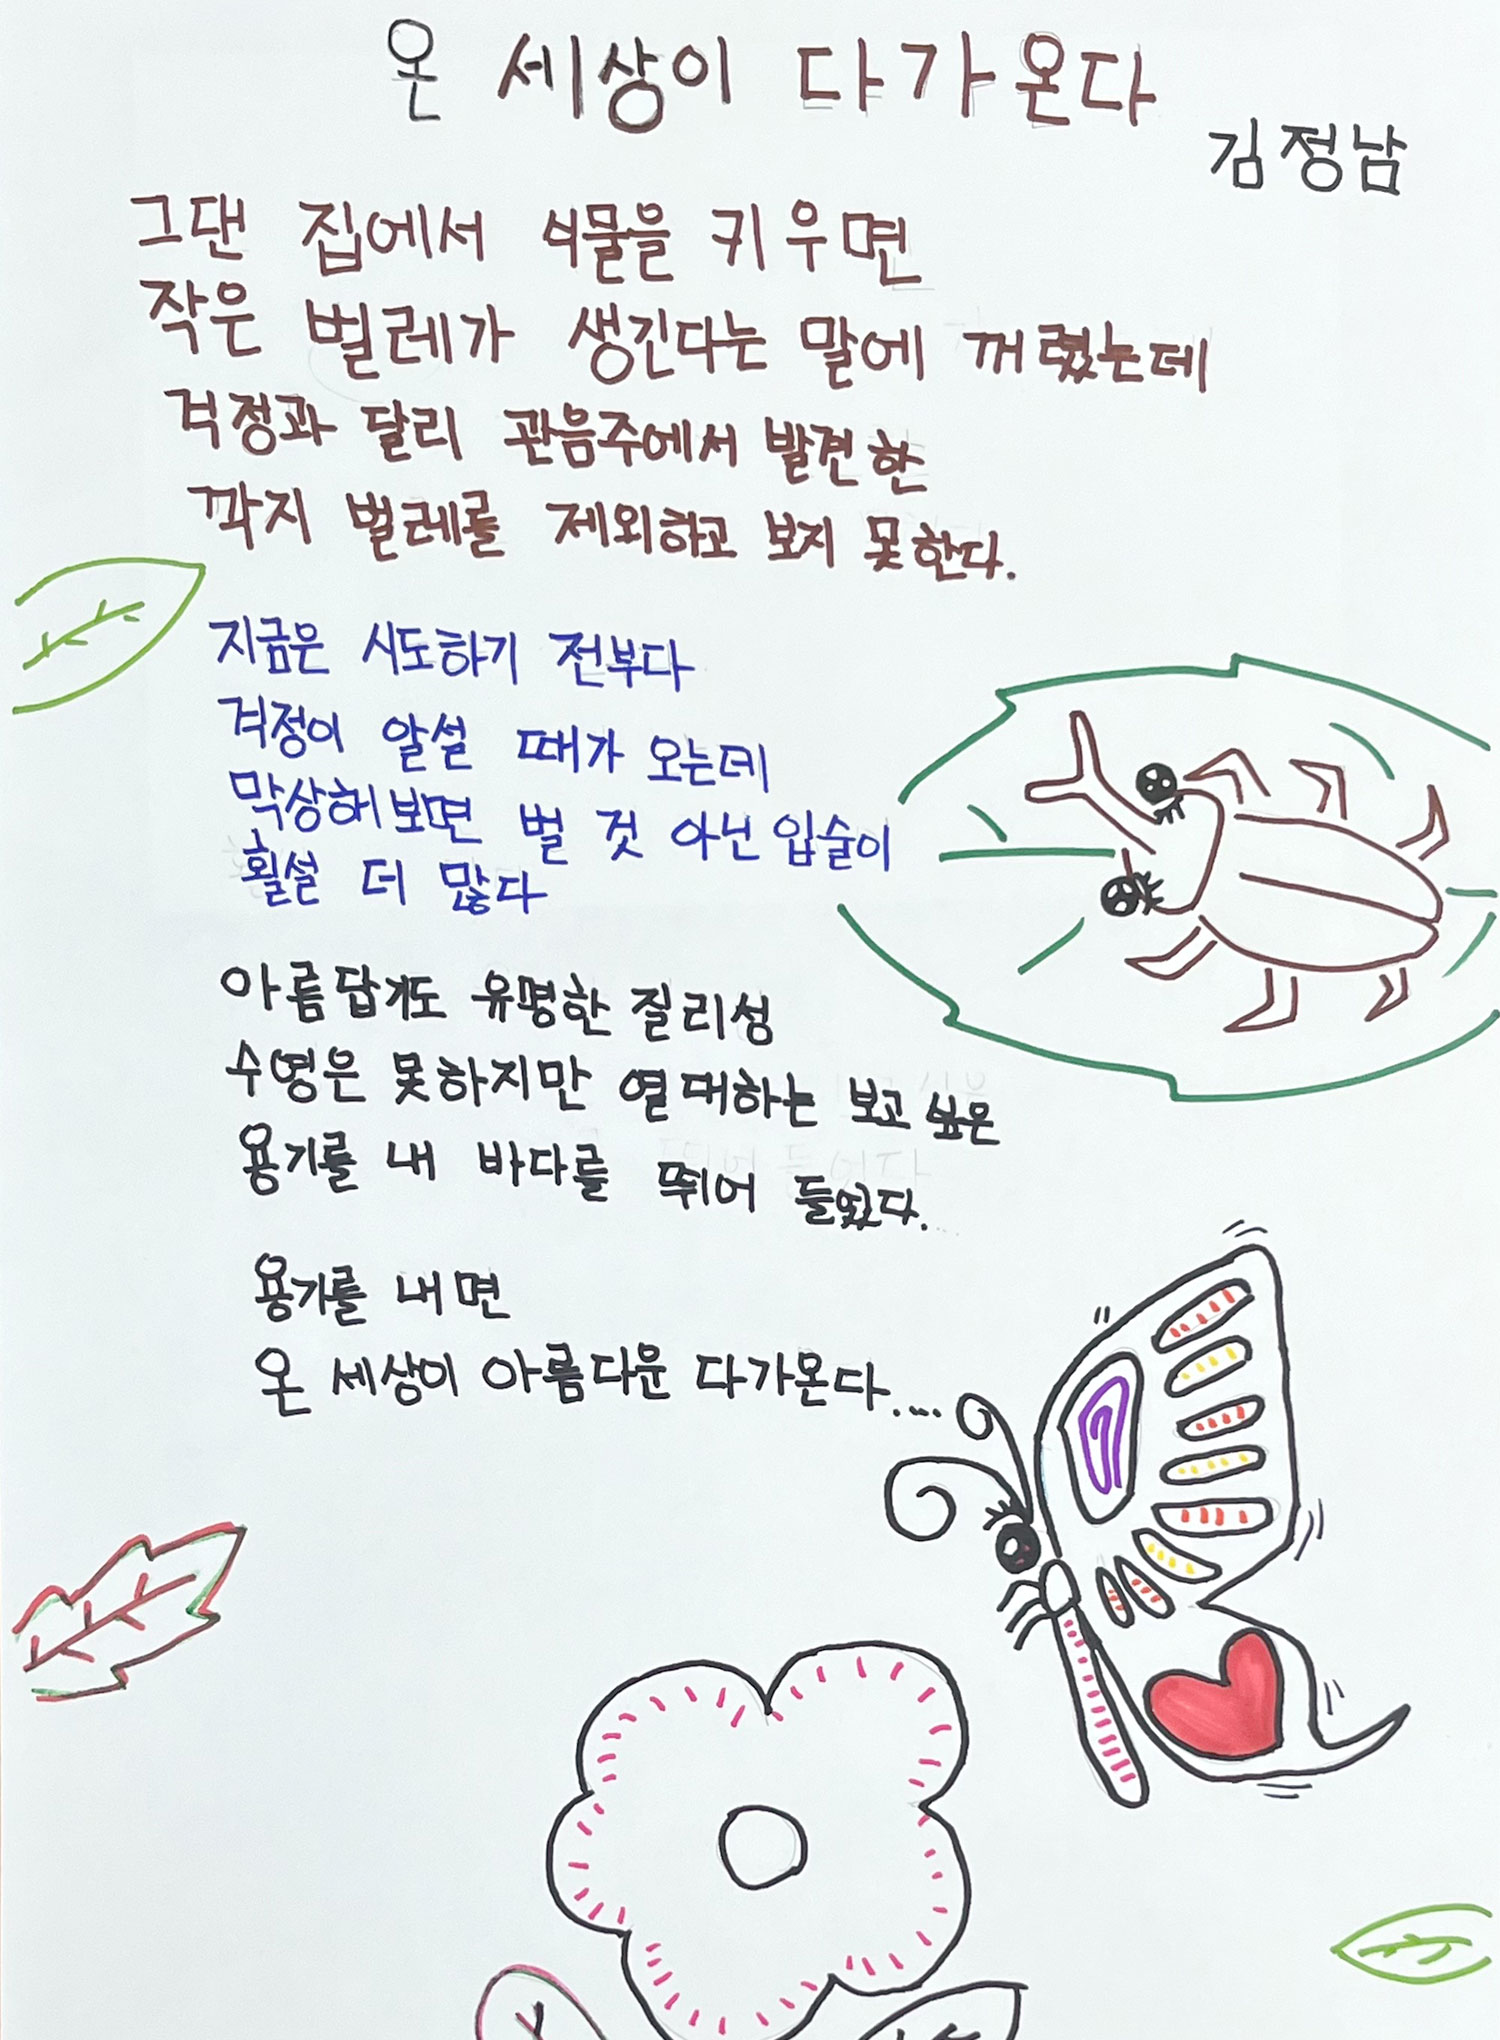 온 세상이 다가온다
김정남
그댄 집에서 식물을 키우면
작은 벌레가 생긴다는 말에 꺼렸는데
걱정과 달리 관음주에서 발견한
깍지 벌레를 제외하고 보지 못한다.
지금은 시도하기 전부다
걱정이 앞설 때가 오는데
막상해보면 벌 것 아닌 입술이
훨설 더 많다
아름답기도 유명한 질리성
수영은 못하지만 열대하는 보고 싶은
용기를 내 바다를 뛰어 들었다.
용기를 내면
온 세상이 아름다운 다가온다....